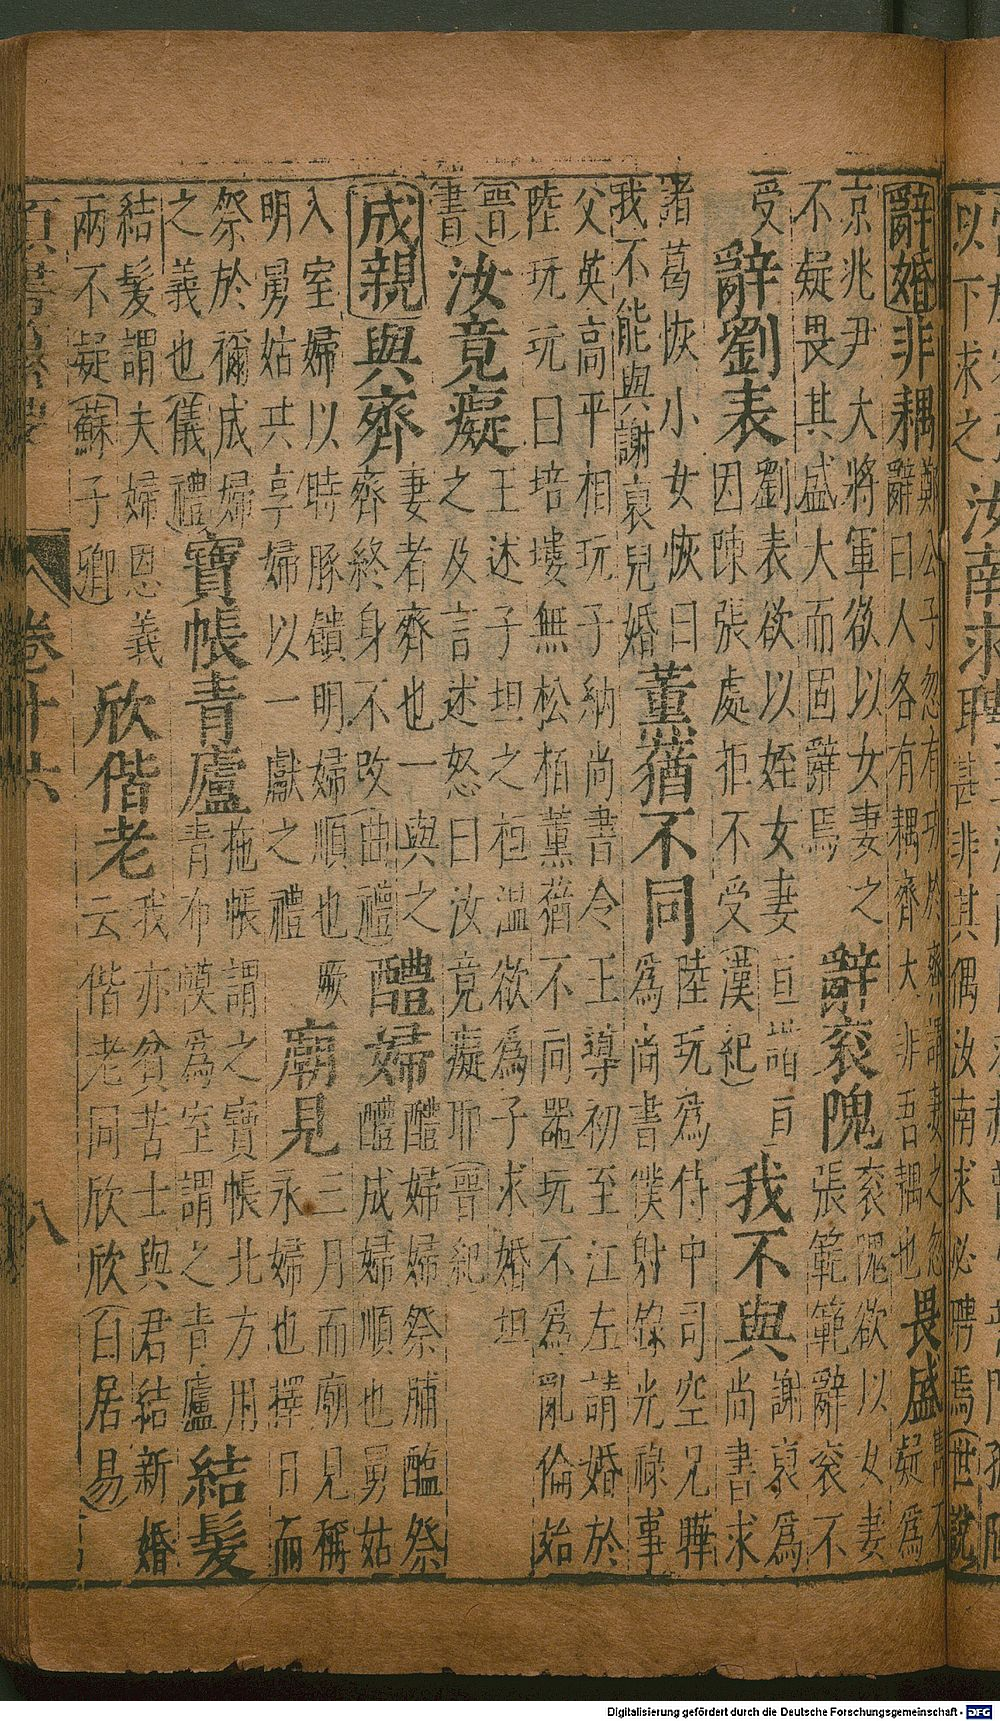 以下求之
汝南求聘
甚非其偶汝南求必聘焉世說
辭婚非耦
鄭公子忽有功於齊齊謂妻之忽
辭曰人各有耦齊大非吾耦也
畏盛
雋不
疑為
京兆尹大將軍欲以女妻之
不疑畏其盛大而固辭焉
辭袞隗
袞隗欲以女妻
張範範辭袞不
受
辭劉表
劉表欲以姪女妻亘諧亘
因陳張處拒不受漢紀
我不與
謝裒為
尚書求
諸葛恢小女恢曰
我不能與謝裒兒婚
薰蕕不同
陸玩為侍中司空兄曄
為尚書僕射錄光祿事
父英高平相玩子納尚書令王導初至江左請婚於
陸玩玩曰培塿無松栢薰蕕不同器玩不為亂倫始
晉
書
汝竟癡
王述子坦之桓溫欲為子求婚坦
之及言述怒曰汝竟癡耶晉紀
成親與齊
妻者齊也一與之
齊終身不改曲禮
醴婦
醴婦婦祭脯醢祭
醴成婦順也舅姑
入室婦以時豚饋明婦順也厥
明舅姑共享婦以一獻之禮
廟見
三月而廟見稱
來婦也擇日而
祭於禰成婦
之義也儀禮
寶帳青廬
拖帳謂之寶帳北方用
青布幔為室謂之青廬
結髮
結髮謂夫婦恩義
兩不疑蘇子卿
欣偕老
我亦貧苦士與君結新婚
云偕老同欣欣白居易
卷十六
八
Digitalisierung gefördert durch die Deutsche Forschungsgemeinschaft - DFG